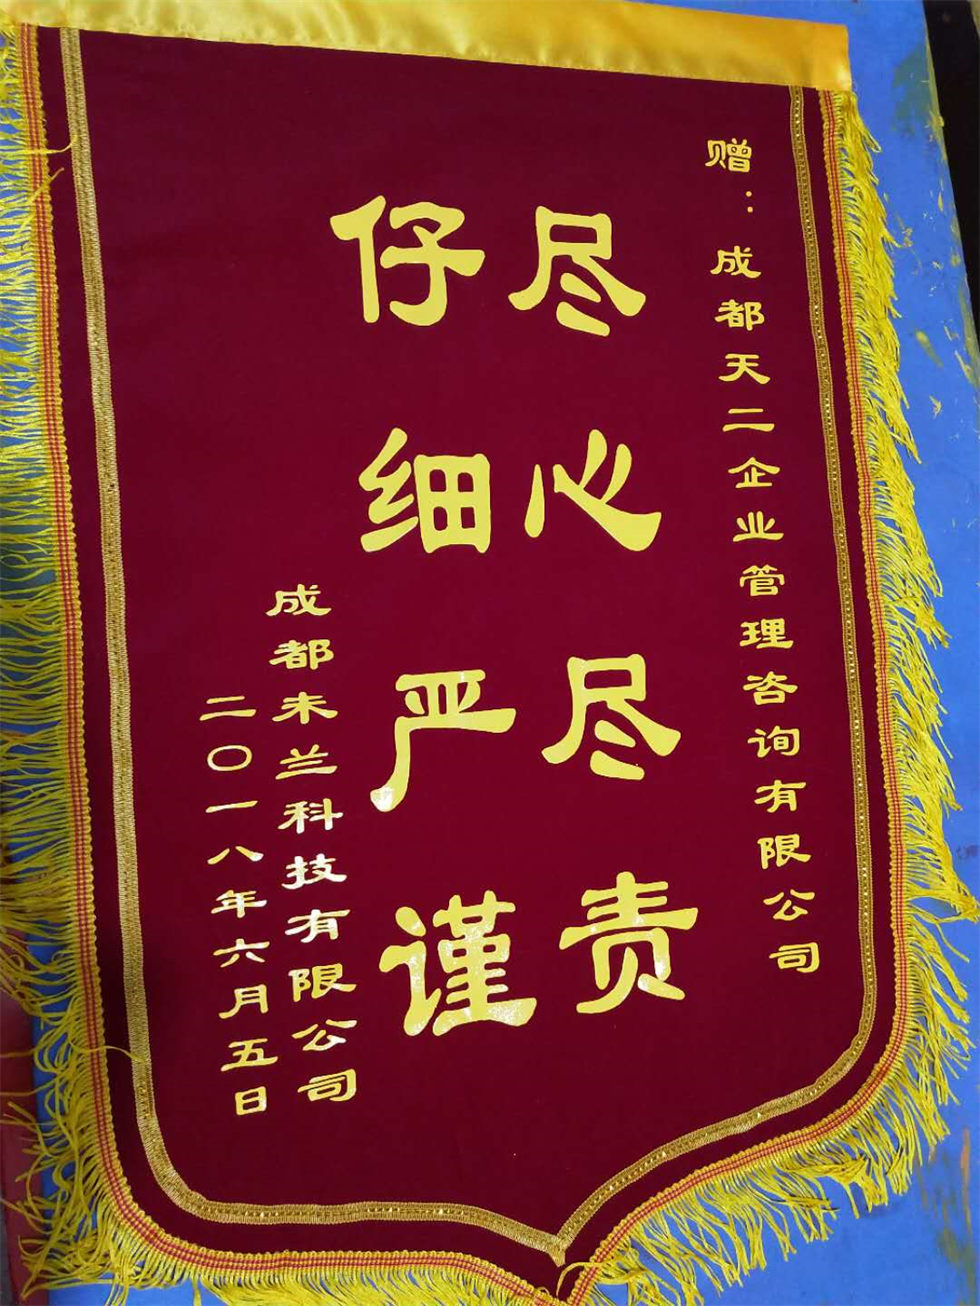 赠：成都天二企业管理咨询有限公司
尽心尽责
仔细严谨
成都未兰科技有限公司
二〇一八年六月五日